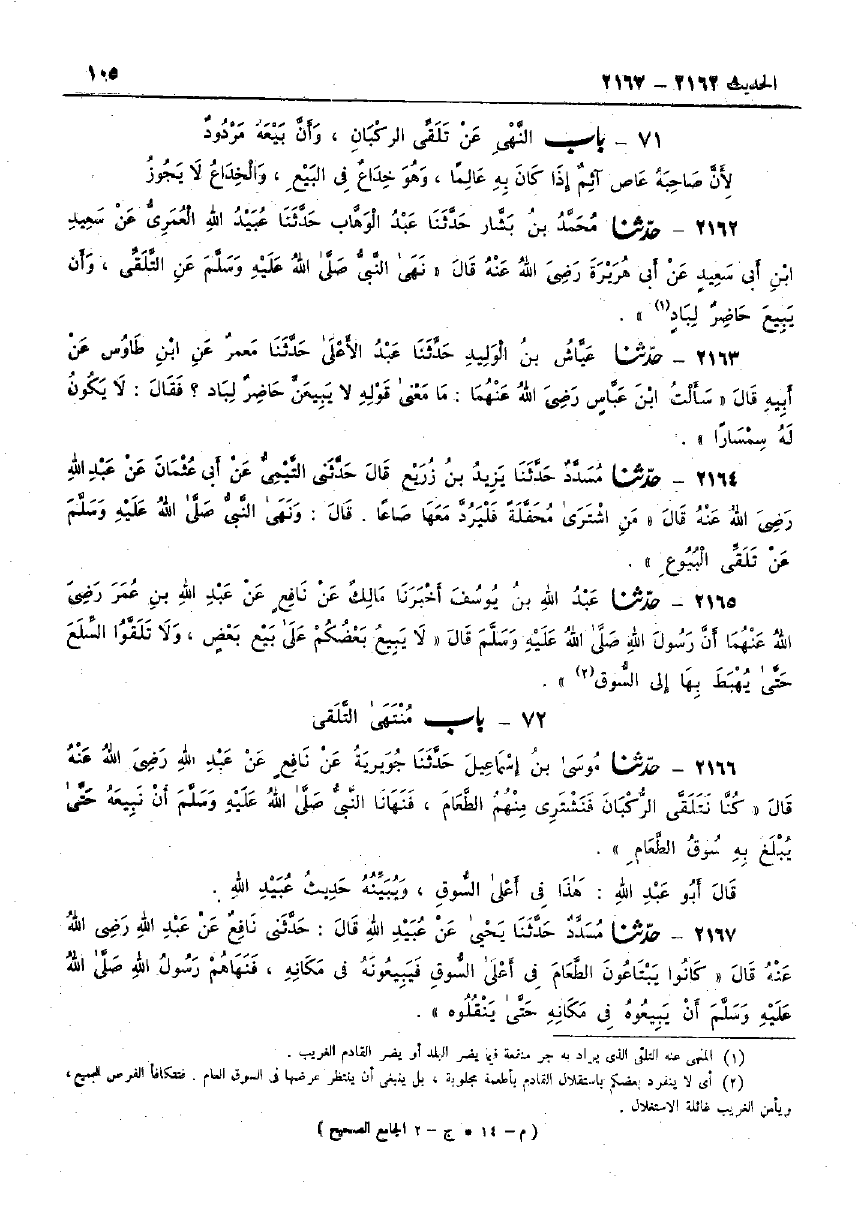 الحديث ٢١٦٢ – ٢١٦٧
١٠٥
٧١ – باب النَّهْىِ عَنْ تَلَقِّى الرُّكْبَانِ ، وَأَنَّ بَيْعَهُ مَرْدُودٌ
لِأَنَّ صَاحِبَهُ عَاصٍ آثِمٌ إِذَا كَانَ بِهِ عَالِمًا ، وَهُوَ خِدَاعٌ فِى البَيْعِ ، وَالْخِدَاعُ لَا يَجُوزُ
٢١٦٢ – حدّثنا مُحَمَّدُ بنُ بَشَّارٍ حَدَّثَنَا عَبْدُ الْوَهَّابِ حَدَّثَنَا عُبَيْدُ اللهِ الْعُمَرِىُّ عَنْ سَعِيدِ
ابْنِ أَبِى سَعِيدٍ عَنْ أَبِى هُرَيْرَةَ رَضِىَ اللهُ عَنْهُ قَالَ « نَهَىٰ النَّبِىُّ صَلَّىٰ اللهُ عَلَيْهِ وَسَلَّمَ عَنِ التَّلَقِّى ، وَأَن
يَبِيعَ حَاضِرٌ لِبَادٍ(١) » .
٢١٦٣ – حدّثنا عَيَّاشُ بنُ الْوَلِيدِ حَدَّثَنَا عَبْدُ الأَعْلَىٰ حَدَّثَنَا مَعمرٌ عَنِ ابْنِ طَاوُسٍ عَنْ
أَبِيهِ قَالَ « سَأَلْتُ ابْنَ عَبَّاسٍ رَضِىَ اللهُ عَنْهُمَا : مَا مَعْنَىٰ قَوْلِهِ لا يَبِيعَنَّ حَاضِرٌ لِبَادٍ ؟ فَقَالَ : لَا يَكُونُ
لَهُ سِمْسَارًا » .
٢١٦٤ – حدّثنا مُسَدَّدٌ حَدَّثَنَا يَزِيدُ بنُ زُرَيْعٍ قَالَ حَدَّثَنِى التَّيْمِىُّ عَنْ أَبِى عُثْمَانَ عَنْ عَبْدِ اللهِ
رَضِىَ اللهُ عَنْهُ قَالَ « مَنِ اشْتَرَىٰ مُحَفَّلَةً فَلْيَرُدَّ مَعَهَا صَاعًا . قَالَ : وَنَهَىٰ النَّبِىُّ صَلَّىٰ اللهُ عَلَيْهِ وَسَلَّمَ
عَنْ تَلَقِّى الْبُيُوعِ » .
٢١٦٥ – حدّثنا عَبْدُ اللهِ بنُ يُوسُفَ أَخْبَرَنَا مَالِكٌ عَنْ نَافِعٍ عَنْ عَبْدِ اللهِ بنِ عُمَرَ رَضِىَ
اللهُ عَنْهُمَا أَنَّ رَسُولَ اللهِ صَلَّىٰ اللهُ عَلَيْهِ وَسَلَّمَ قَالَ « لَا يَبِيعُ بَعْضُكُمْ عَلَىٰ بَيْعِ بَعْضٍ ، وَلَا تَلَقَّوُا السِّلَعَ
حَتَّىٰ يُهْبَطَ بِهَا إِلى السُّوقِ(٢) » .
٧٢ – باب مُنْتَهَىٰ التَّلَقِّى
٢١٦٦ – حدّثنا مُوسَىٰ بنُ إِسْمَاعِيلَ حَدَّثَنَا جُوَيرِيَةُ عَنْ نَافِعٍ عَنْ عَبْدِ اللهِ رَضِىَ اللهُ عَنْهُ
قَالَ « كُنَّا نَتَلَقَّى الرُّكْبَانَ فَنَشْتَرِى مِنْهُمُ الطَّعَامَ ، فَنَهَانَا النَّبِىُّ صَلَّىٰ اللهُ عَلَيْهِ وَسَلَّمَ أَنْ نَبِيعَهُ حَتَّىٰ
يُبْلَغَ بِهِ سُوقُ الطَّعَامِ » .
قَالَ أَبُو عَبْدِ اللهِ : هَٰذَا فِى أَعْلىٰ السُّوقِ ، وَيُبَيِّنُهُ حَدِيثُ عُبَيْدِ اللهِ .
٢١٦٧ – حدّثنا مُسَدَّدٌ حَدَّثَنَا يَحْيىٰ عَنْ عُبَيْدِ اللهِ قَالَ : حَدَّثَنِى نَافِعٌ عَنْ عَبْدِ اللهِ رَضِىَ اللهُ
عَنْهُ قَالَ « كَانُوا يَبْتَاعُونَ الطَّعَامَ فِى أَعْلَىٰ السُّوقِ فَيَبِيعُونَهُ فِى مَكَانِهِ ، فَنَهَاهُمْ رَسُولُ اللهِ صَلَّىٰ اللهُ
عَلَيْهِ وَسَلَّمَ أَنْ يَبِيعُوهُ فِى مَكَانِهِ حَتَّىٰ يَنْقُلُوه » .
(١) المنهى عنه التلقى الذى يراد به جر منفعة فيما يضر البلد أو يضر القادم الغريب .
(٢) أى لا ينفرد بعضكم باستقلال القادم بأطعمة مجلوبة ، بل ينبغى أن ينتظر عرضها فى السوق العام . فتتكافأ الفرص للجميع ،
ويأمن الغريب غائلة الاستغلال .
( م – ١٤ * ج – ٢ الجامع الصحيح )